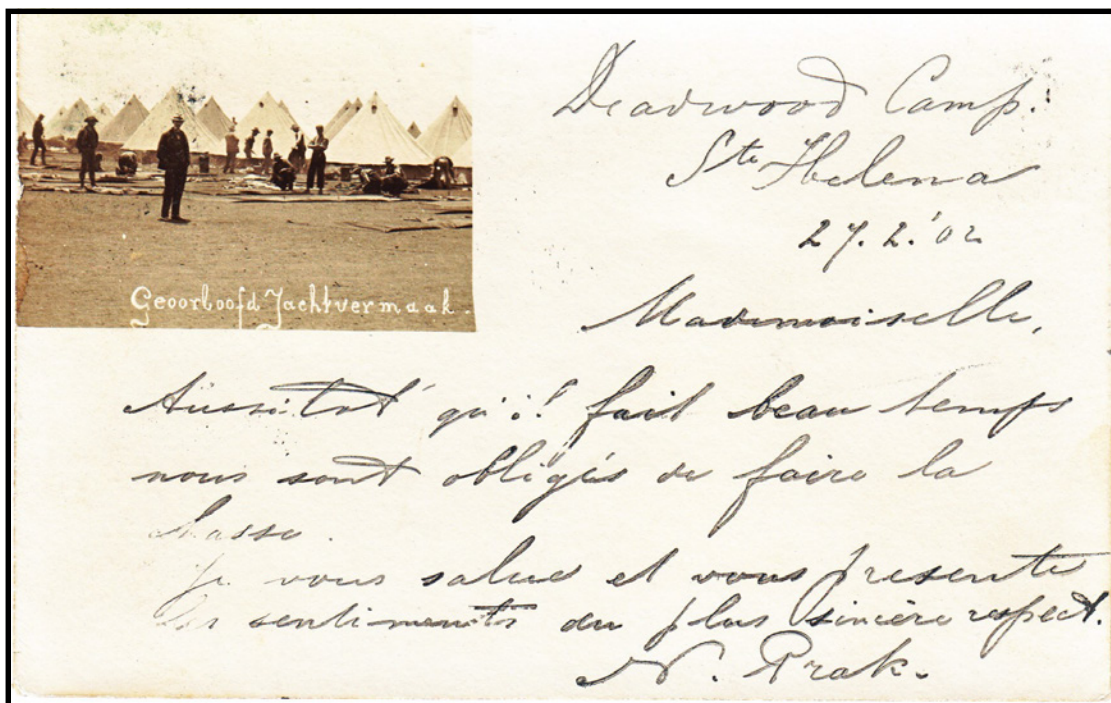 Geoorloofd Jachtvermaak.
Deadwood Camp.
Ste Helena
27.2.'02
Mademoiselle,
Aussitot qu'il fait beau temps
nous sont obligés de faire la
chasse.
Je vous salue et vous presente
les sentiments du plus sincère respect.
N. Prak.